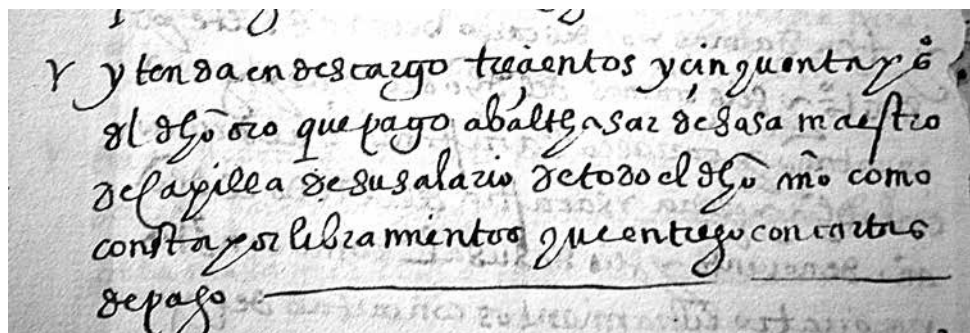 Y yten da en descargo trezientos y çinquenta ps̊
del dho oro que pago a balthasar de sasa maestro
de capilla de su salario de todo el dho mo como
consta por libramientos que entrego con cartas
de pago